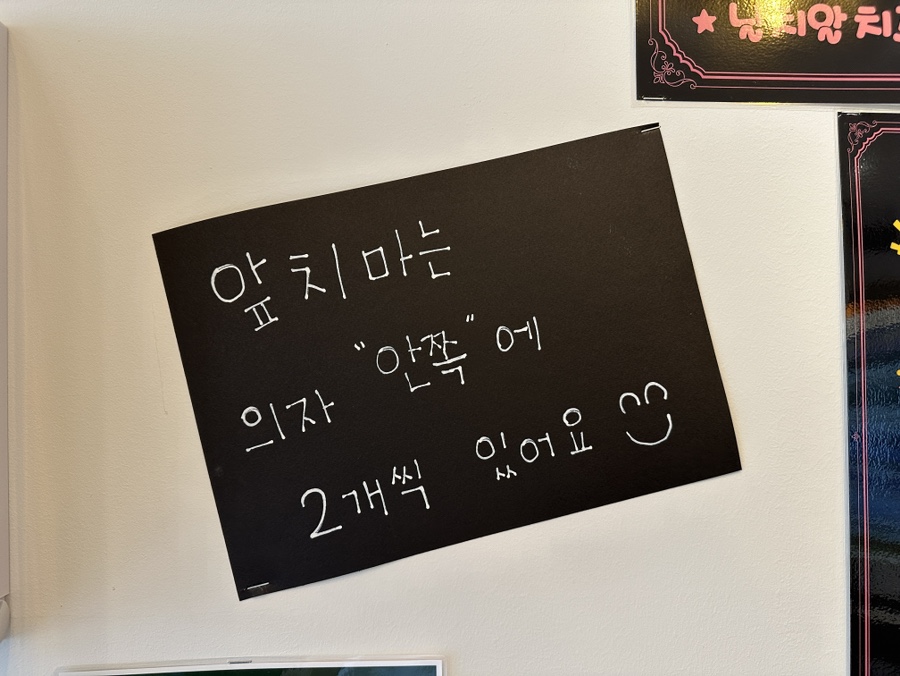 앞치마는
의자 "안쪽"에
2개씩 있어요
날치알 치즈